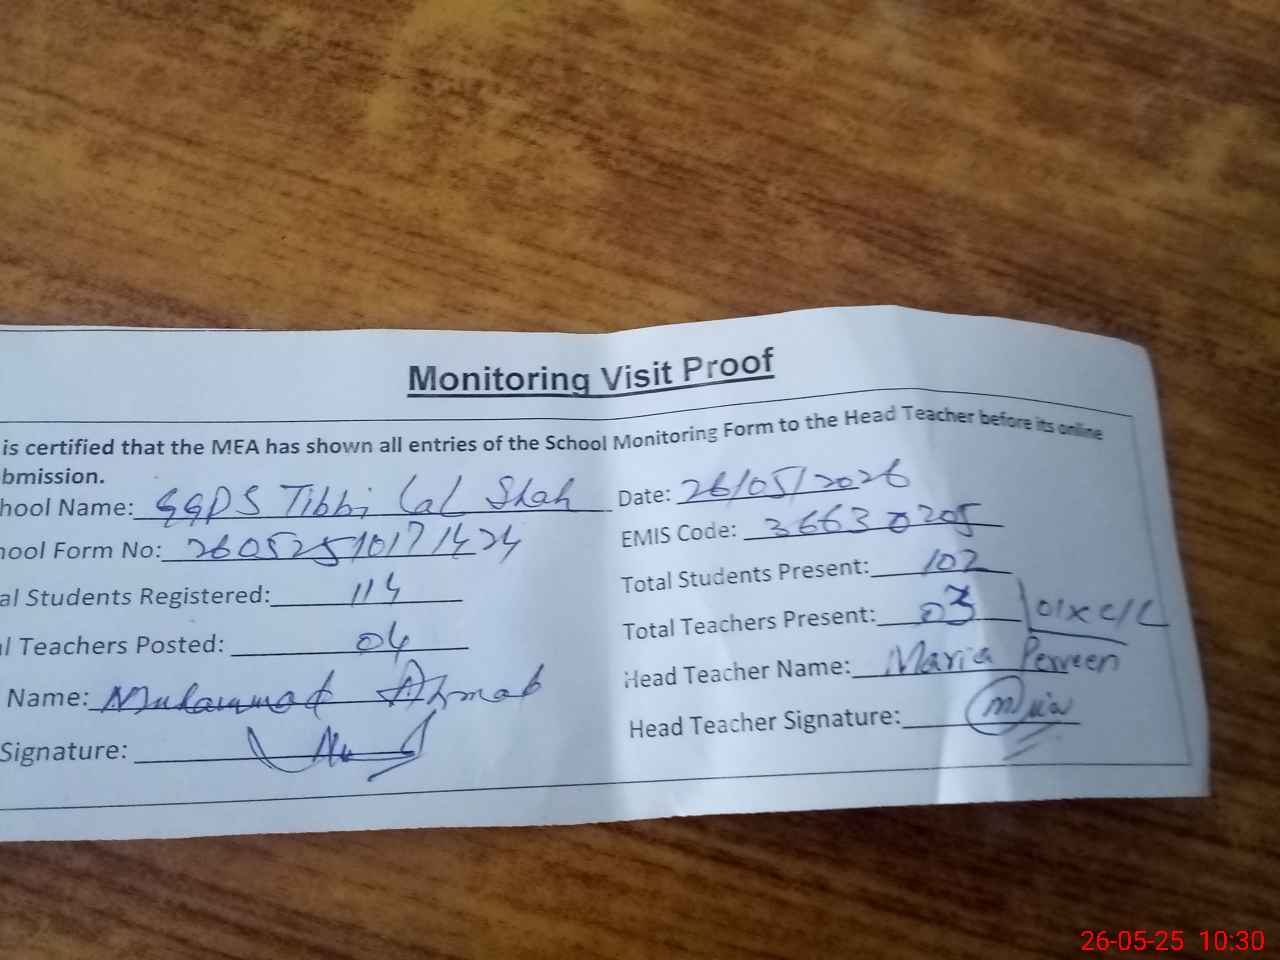 Monitoring Visit Proof
is certified that the MEA has shown all entries of the School Monitoring Form to the Head Teacher before its online
bmission.
hool Name: GGPS Tibbi Lal Shah Date: 26/05/2026
hool Form No: 26052510171424 EMIS Code: 36630205
al Students Registered: 114 Total Students Present: 102
l Teachers Posted: 04 Total Teachers Present: 03 01x C/L
Name: Muhammad Ahmad Head Teacher Name: Maria Perveen
Signature: Head Teacher Signature:
26-05-25 10:30